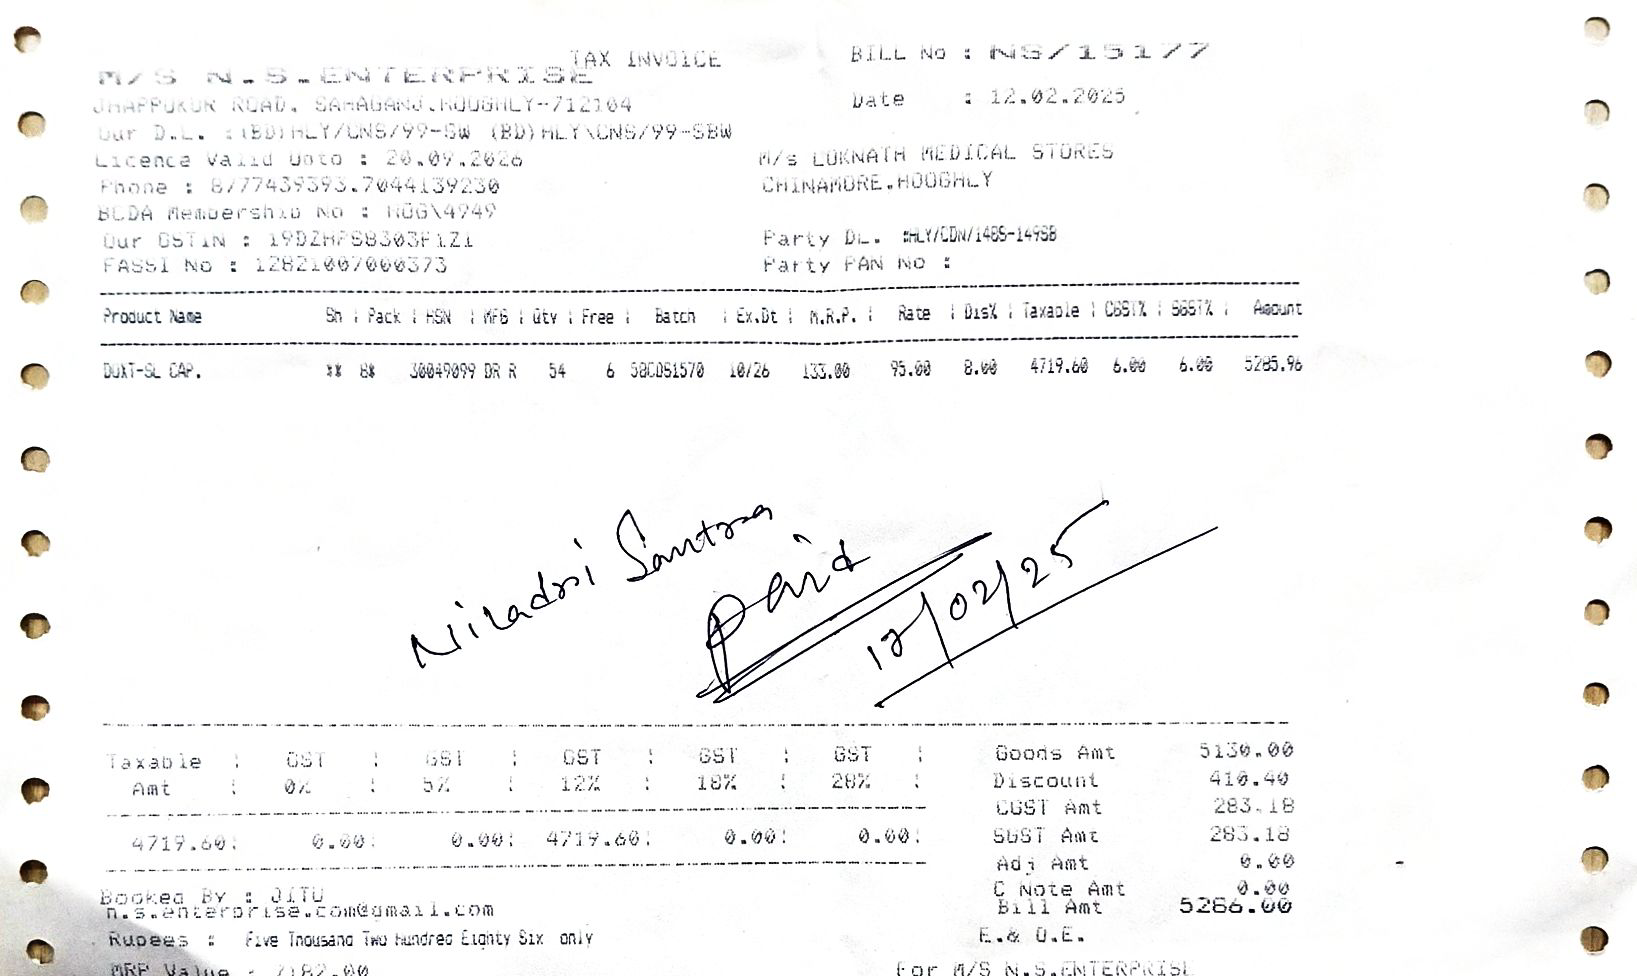 TAX INVOICE
BILL No : NS/15177
M/S N.S.ENTERPRISE
JHAPPUKUR ROAD, SAHAGANJ.HOOGHLY-712104
Date : 12.02.2025
Our D.L. :(BD)HLY/CNS/99-SW (BD)HLY\CNS/99-SBW
Licence Valid Upto : 20.09.2026
M/s LOKNATH MEDICAL STORES
Phone : 8777439393.7044139230
CHINAMORE.HOOGHLY
BCDA Membership No : HOG\4949
Our GSTIN :
Party DL. :HLY/CDN/148S-149SB
FASSI No : 12821007000373
Party PAN No :
Product Name Sh | Pack | HSN | MFG | Qty | Free | Batch | Ex.Dt | M.R.P. | Rate | Dis% | Taxable | CGST% | SGST% | Amount
DUXT-SL CAP. ** 8* 30049099 DR R 54 6 58CDS1570 10/26 133.00 95.00 8.00 4719.60 6.00 6.00 5285.96
Niladri Santra
Paid
12/02/25
Taxable | GST | GST | GST | GST | GST |
Amt | 0% | 5% | 12% | 18% | 28% |
4719.60| 0.00| 0.00| 4719.60| 0.00| 0.00|
Goods Amt 5130.00
Discount 410.40
CGST Amt 283.18
SGST Amt 283.18
Adj Amt 0.00
C Note Amt 0.00
Bill Amt 5286.00
Booked By : JITU
n.s.enterprise.com@gmail.com
Rupees : Five Thousand Two Hundred Eighty Six only
E.& O.E.
MRP Value : 7182.00
For M/S N.S.ENTERPRISE